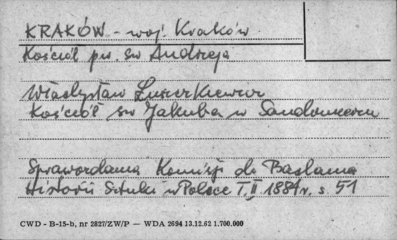 KRAKÓW - woj. Kraków
Kościół pw. św Andrzeja
Władysław Łuszczkiewicz
Kościół św Jakuba w Sandomierzu
Sprawozdania Komisji do Badania
Historii Sztuki w Polsce T. II 1884 r. s. 51
CWD - B-15-b, nr 2827/ZW/P — WDA 2694 13.12.62 1.700.000